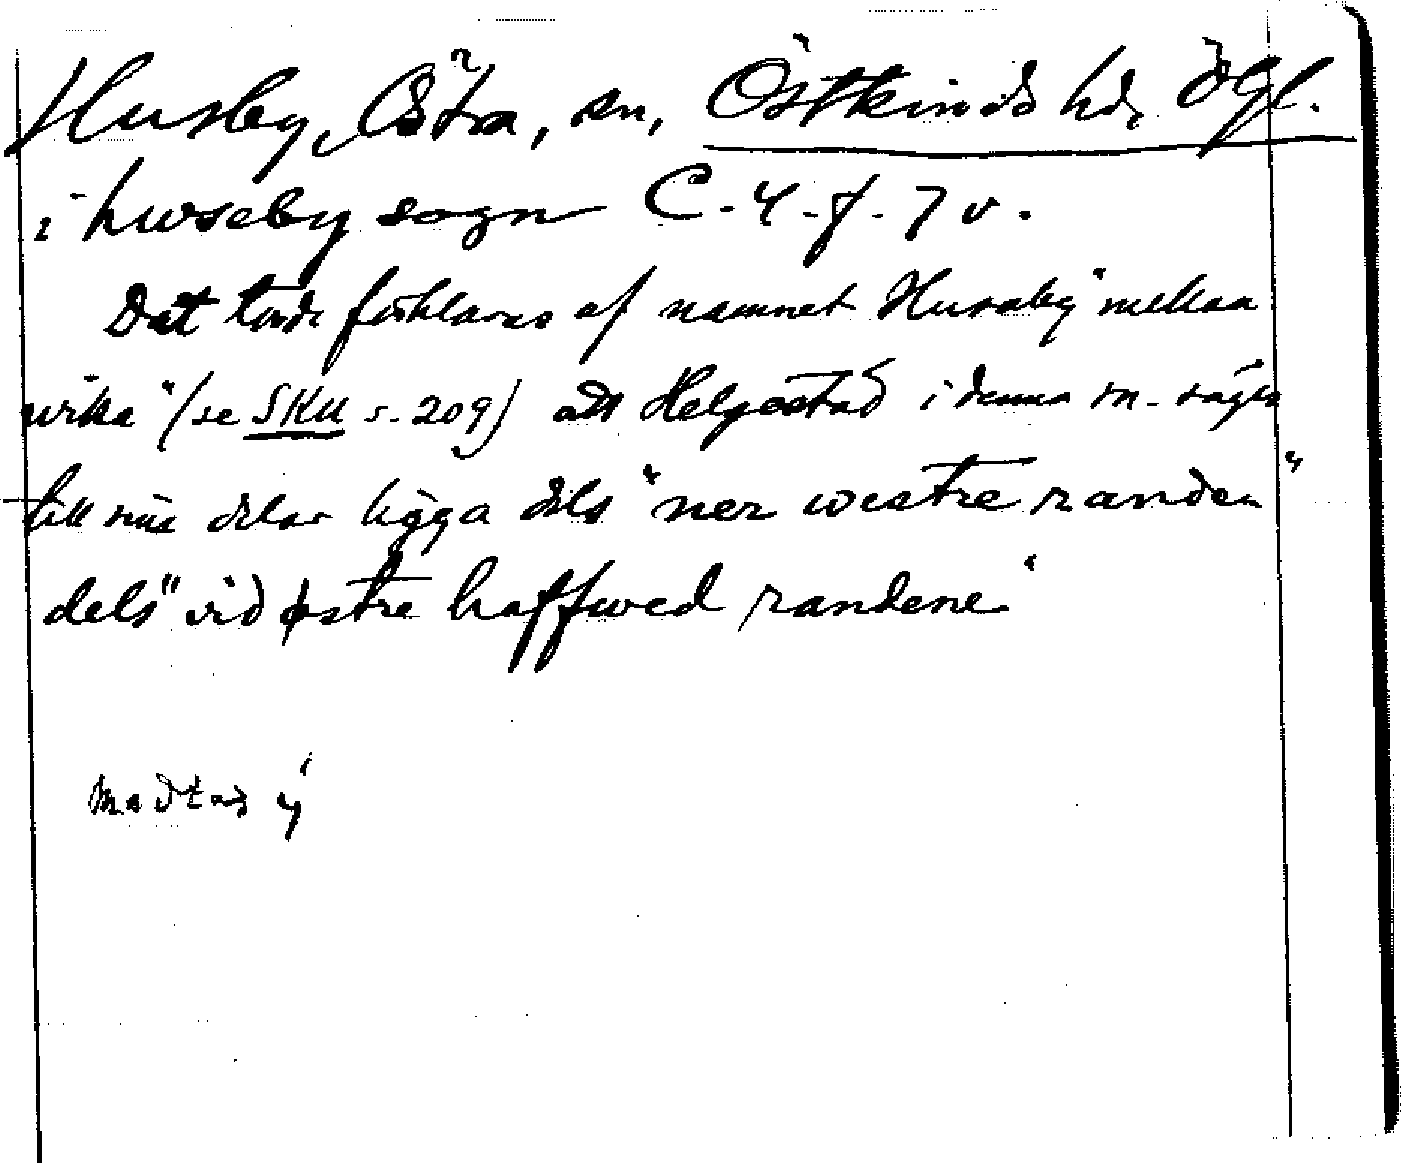 Husby, Östra, sn, Östkinds hd, Ögl.
i hwseby sogn C-4-f-7v.
Det torde förklaras af namnet Husaby "mellan
wika" (se SKU s. 209) att Helgestad i denna sn. säges
till sina delar ligga dels "ner westre randen"
dels "vid østre haffwed randene"